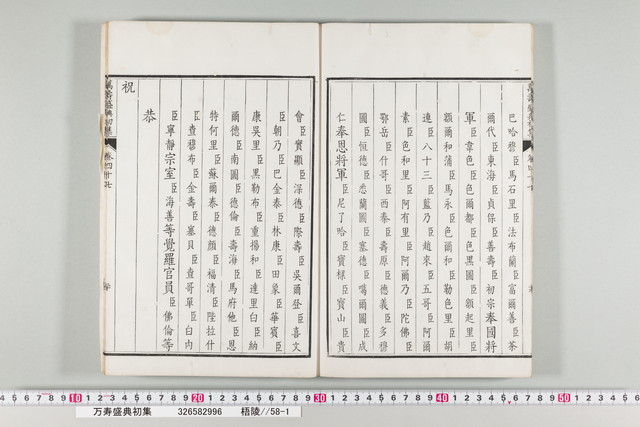 巴哈穆臣馬石里臣法布蘭臣富爾善臣茶
爾代臣東海臣貞保臣善壽臣初宗奉國將
軍臣韋色臣色爾都臣色黑圖臣額起里臣
額爾和蒲臣馬永臣色爾和臣勒色里臣胡
連臣八十三臣藍乃臣趙來臣五哥臣阿爾
素臣色和里臣阿有里臣阿爾乃臣陀佛臣
鄂岳臣什哥臣西泰臣壽原臣德義臣多穆
圖臣恒德臣悉蘭圖臣塞德臣噶爾圖臣成
仁奉恩將軍臣尼了哈臣寶樑臣寶山臣貴
會臣實顯臣深德臣際壽臣吳爾登臣喜文
臣朝乃臣巴金泰臣林康臣田象臣華賓臣
康吳里臣黑勒布臣重揚和臣達里白臣納
爾德臣南圖臣德倫臣壽海臣馬府他臣恩
特何里臣蘇爾泰臣德顏臣福清臣陛拉什
臣查穆布臣金壽臣塞貝臣查哥單臣白内
臣寧靜宗室臣海善等覺羅官員臣佛倫等
恭
祝
萬壽盛典初集
卷四十七
10 20 30 40 50
万寿盛典初集 326582996 梧陵//58-1